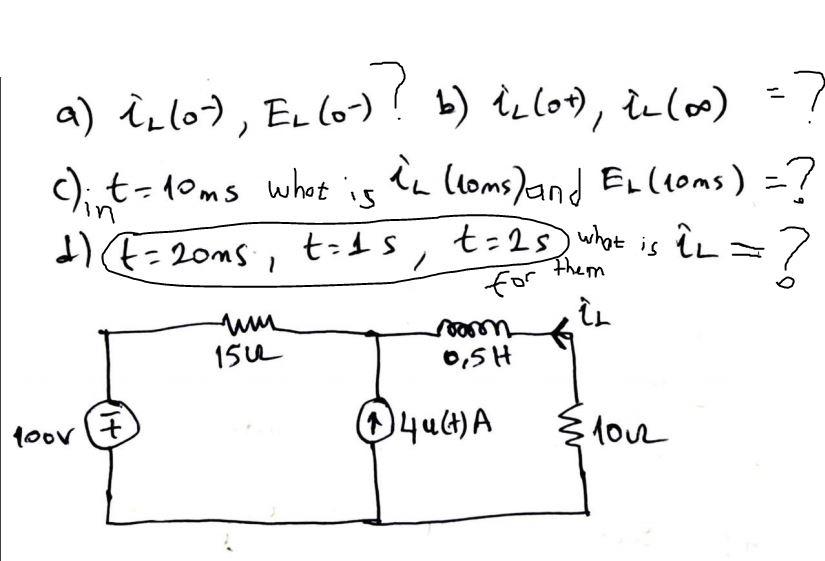 a) iL(0-), EL(0-)? b) iL(0+), iL(∞) = ?
c) in t=10ms what is iL (10ms) and EL(10ms) = ?
d) t=20ms, t=1s, t=2s what is iL = ?
for them
iL
15Ω 0,5H
100V ∓ ↑ 4u(t)A 10Ω